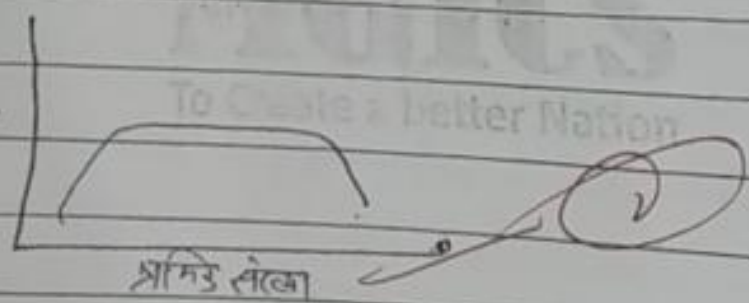 To Create a Better Nation
श्रमिक संख्या
2